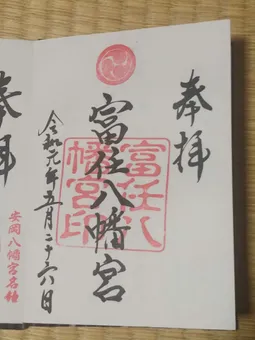 奉拝
富任八幡宮
富任八
幡宮印
令和元年五月二十六日
奉拝
安岡八幡宮